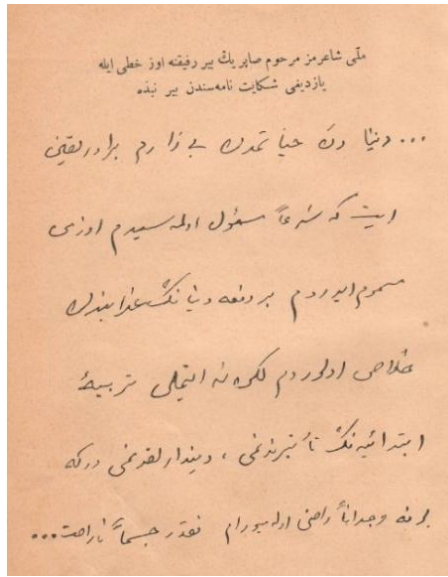 ملّی شاعرمز مرحوم صابریڭ بیر رفیقنه اوز خطی ایله
یازدیغی شکایت نامه‌سندن بیر نبذه
... دنیا دن حیاتمدن بی زارم برادر یقین
ایت که شرعاً مسئول اولمه‌سیدم اوزمی
مسموم ایدردم بر دفعه دنیانڭ عذابندن
خلاص اولوردم لکن نه ایتملی تربیهٔ
ابتدائیه‌نڭ تأثیرندنمی ، دیندارلقدنمی در که
بونه وجداناً راضی اوله‌بیورام نقدر جسماً ناراحت...